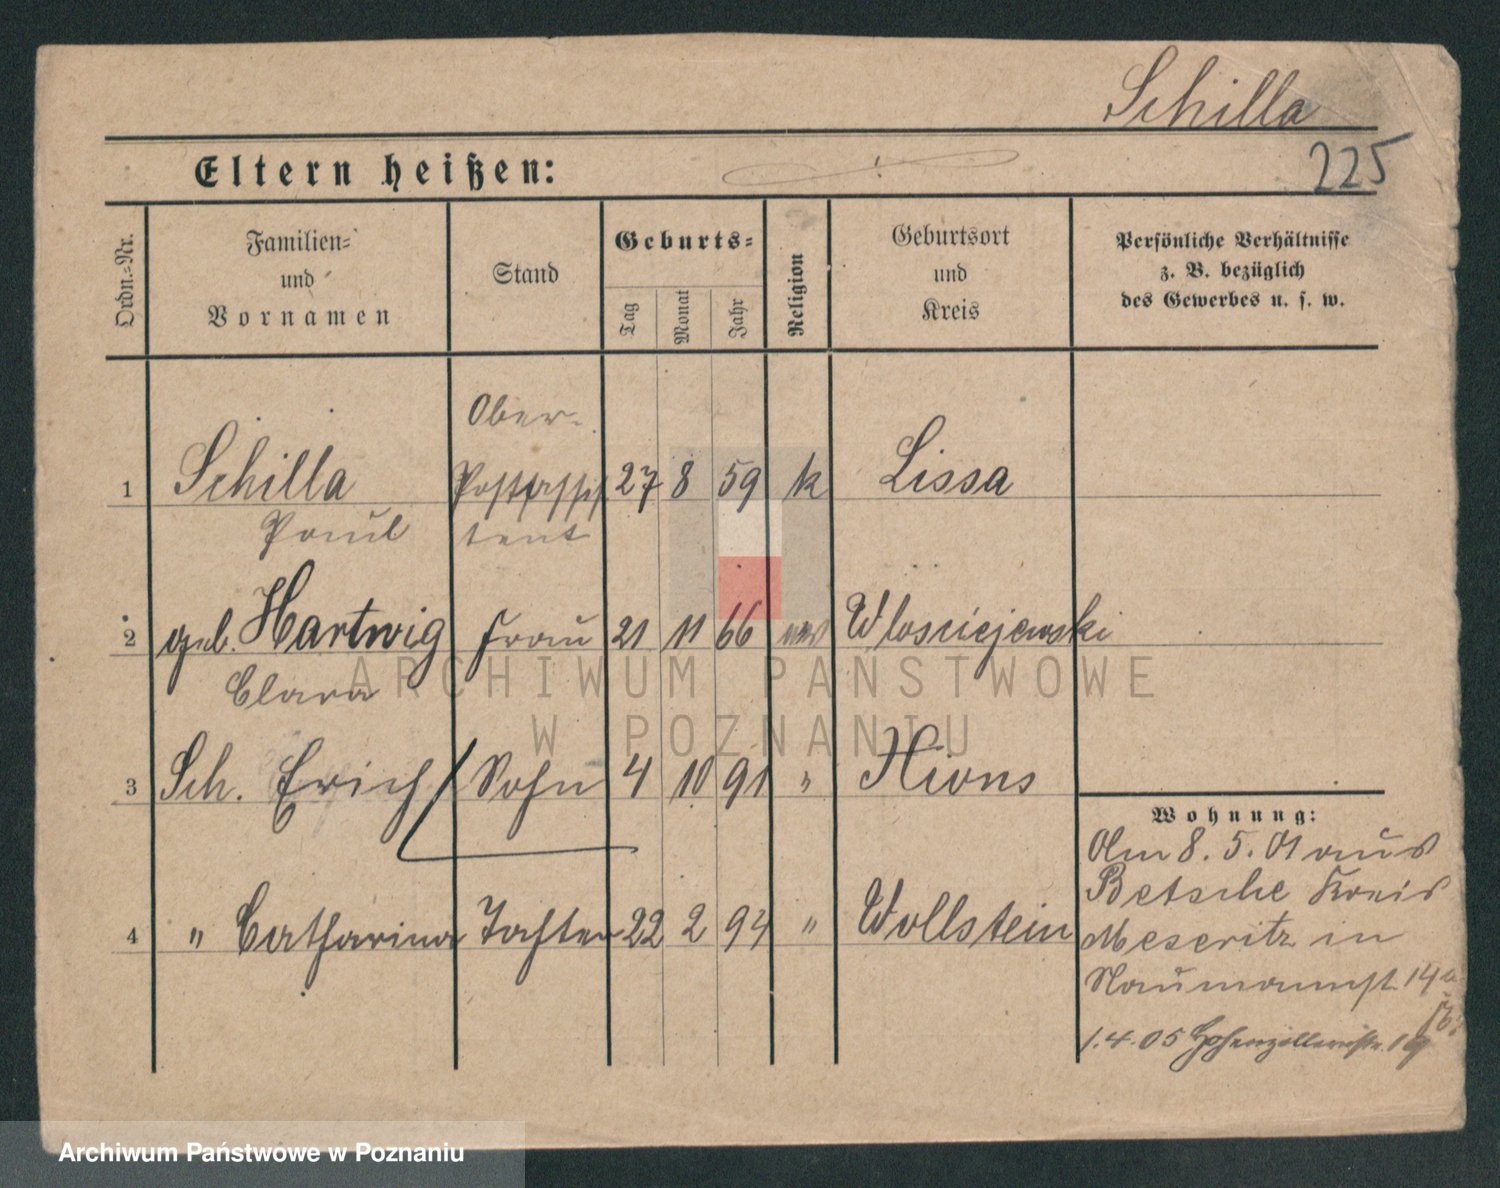 Schilla
225
Eltern heißen:
Ordn.-Nr.
Familien-
und
Vornamen
Stand
Geburts-
Tag
Monat
Jahr
Religion
Geburtsort
und
Kreis
Persönliche Verhältnisse
z. B. bezüglich
des Gewerbes u. s. w.
Ober-
1 Schilla Postassis 27 8 59 k Lissa
Paul tent
2 geb. Hartwig Frau 21 11 66 Wlosciejewski
Clara
3 Sch. Erich Sohn 4 10 91 " Xions
Wohnung:
Am 8. 5. 01 aus
Betsche Kreis
4 " Catharina Tochter 22 2 94 " Wollstein
Meseritz in
Naumannst. 14a
1.4.05 Hohenzollernstr. 19
ARCHIWUM PAŃSTWOWE
W POZNANIU
Archiwum Państwowe w Poznaniu